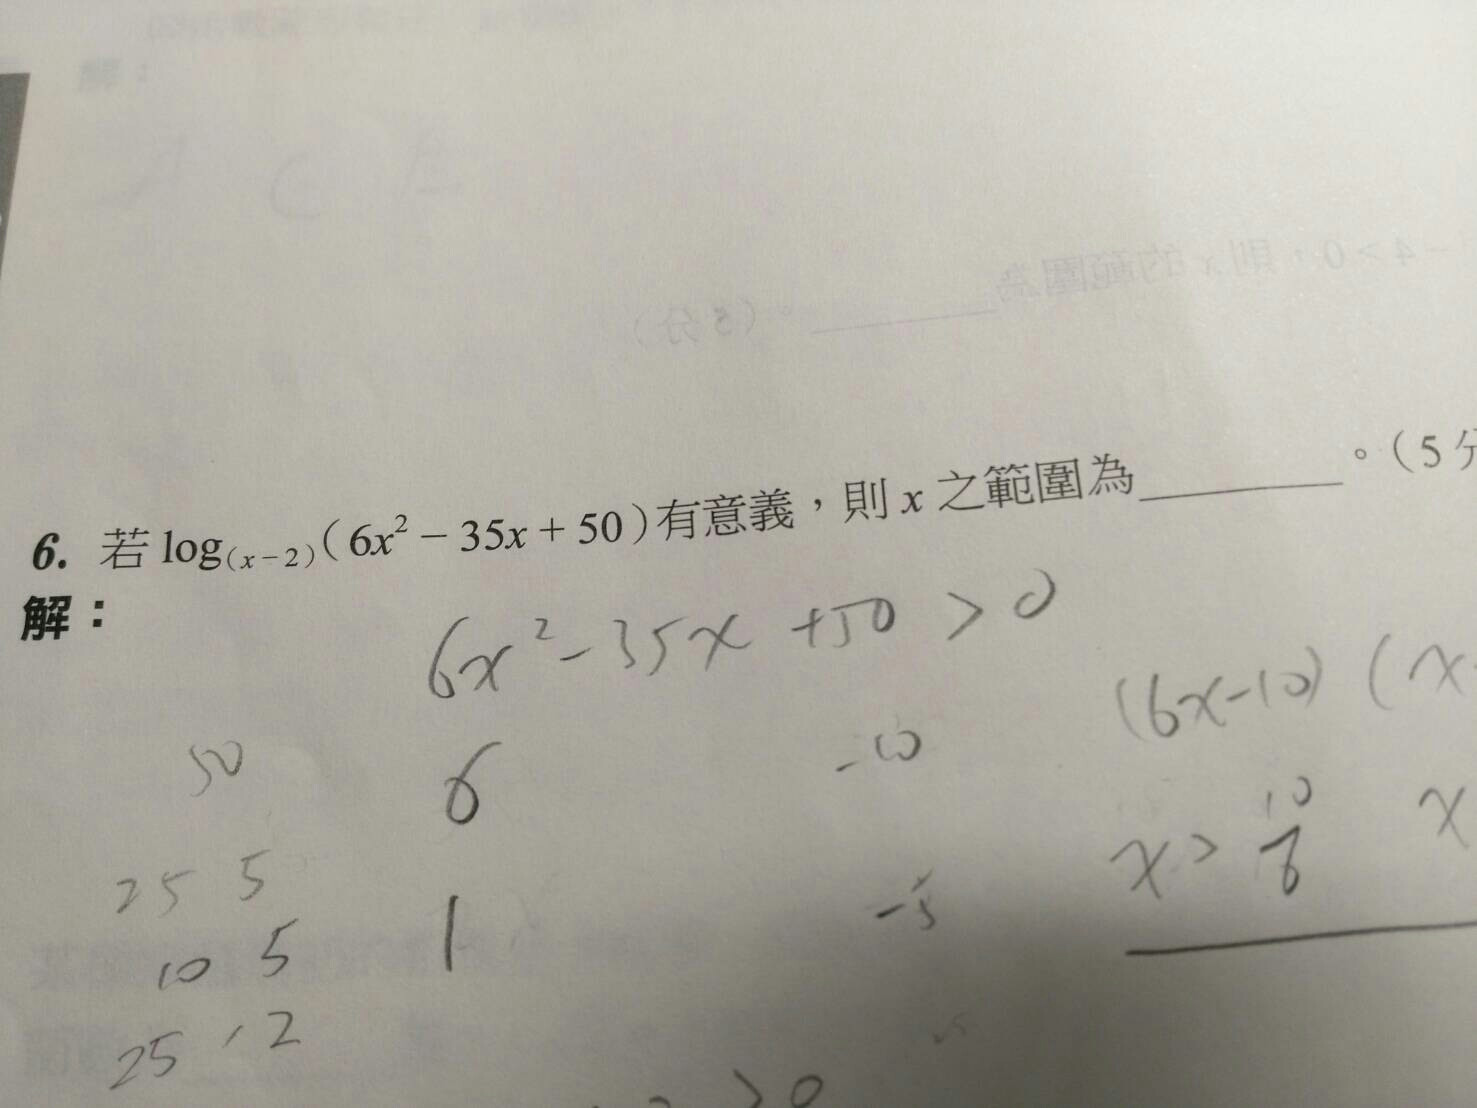 6. 若 log₍ₓ₋₂₎(6x² − 35x + 50)有意義,則 x 之範圍為________。(5
解:
6x² - 35x + 50 > 0
(6x-10) (x
50
6
-10
x > 10/6
x
25 5
1
-5
10 5
25, 2
> 0